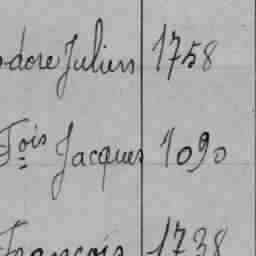 odore Julien 1758
Fois Jacques 1090
François 1738